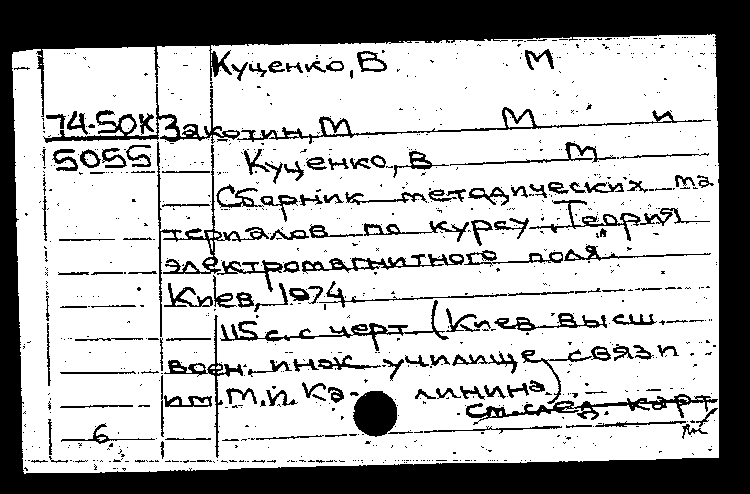 Куценко, В М
74-50К Закотин, М М и
5055 Куценко, В М
Сборник методических ма
териалов по курсу „Теория
электромагнитного поля".
Киев, 1974.
115 с. с черт (Киев высш.
воен. инж училище связи
им. М. И. Ка- линина)
см. след. карт
6